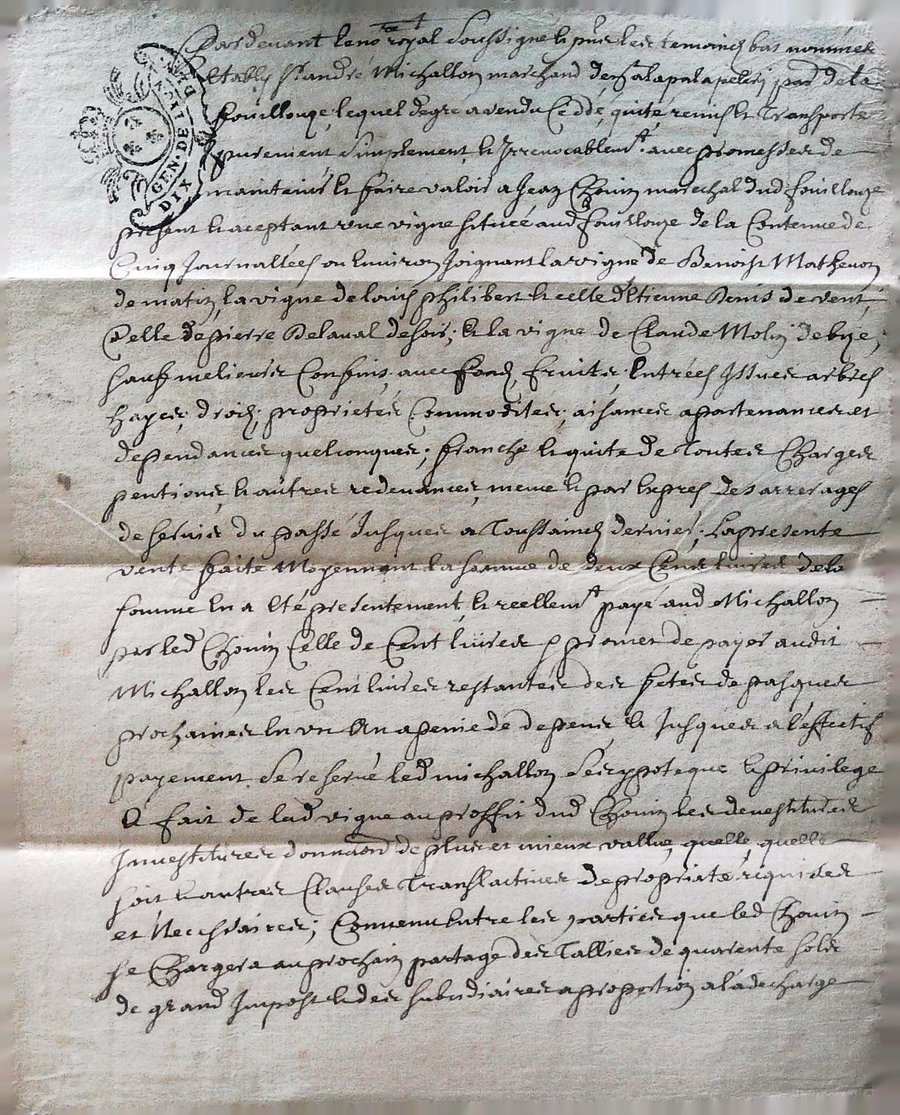 GEN. DE LION
DIX
Pardevant le no.re royal soussigné & pñs les temoins bas nommés
Etably Sr andré Michallon marchand de par de la
fouillouze, lequel degre a vendu Cedé, quité remis & Transporté
purement Simplement, & Irrevocablem.t avec promesses de
maintenir & faire valoir a Jean Chovin marechal dud fouillouze
present & aceptant une vigne Située aud fouillouze de la Contenue de
Cinq Journallées ou Environ Joignant la vigne de Benoist Mathevon
de matin, la vigne de Louis philibert & celle d'Etienne Denis de vent,
Celle de pierre Delaval de soir; & la vigne de Claude Molin de bize;
Sauf melieurs Confins, avec fond, fruits, Entrées Issues arbres
hayes, droits, proprietés Commodités, aisances apartenances et
dependances quelconques; franche & quite de Toutes Charges
pentions, & autres redevances, meme & par Expres des arrerages
de servis du passé Jusques a Toussaincts dernier; La presente
vente faite Moyennant la somme de deux Cents livres de la
somme En a Eté presentement, & reellem.t payé aud Michallon
par led Chovin Celle de Cent livres & promet de payer audit
Michallon les Cent livres restantes des fetes de pasques
prochaines En un An a peine de depens & Jusques a l'effectif
payement Se reserve led michallon Ses ypoteque & privilege
A fait de lad vigne au proffit dud Chovin les devestitures
Investitures donnaõn de plus et mieux vallue, quelle, quelle
soit & autres Clauses Translactives de propriaté requises
et Necessaires; Convenu Entre les parties que led Chovin
se Chargera au prochain partage des Tallies de quarente sols
de grand Impost & des subsidiaires a proportion a la decharge